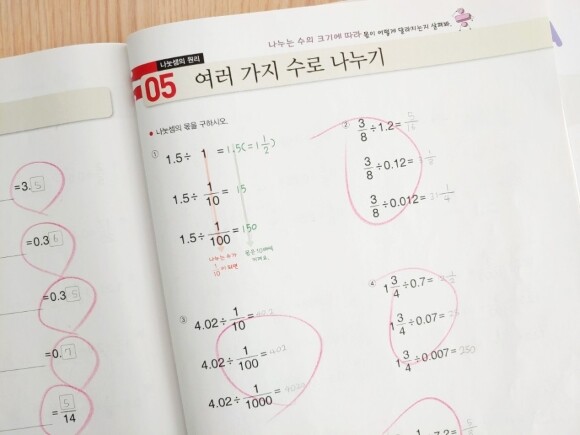 나누는 수의 크기에 따라 몫이 어떻게 달라지는지 살펴봐.
나눗셈의 원리
05 여러 가지 수로 나누기
● 나눗셈의 몫을 구하시오.
① 1.5÷ 1 = 1.5(=1 1/2)
1.5÷ 1/10 = 15
1.5÷ 1/100 = 150
나누는 수가 1/10 이 되면
몫은 10배씩 커져요.
② 3/8 ÷1.2= 5/16
3/8 ÷0.12=
3/8 ÷0.012= 31 1/4
③ 4.02÷ 1/10 =
4.02÷ 1/100 = 402
4.02÷ 1/1000 = 4020
④ 1 3/4 ÷0.7=
1 3/4 ÷0.07= 25
1 3/4 ÷0.007= 250
=3. 5
=0.3 6
=0.3 5
=0. 7
= 5/14